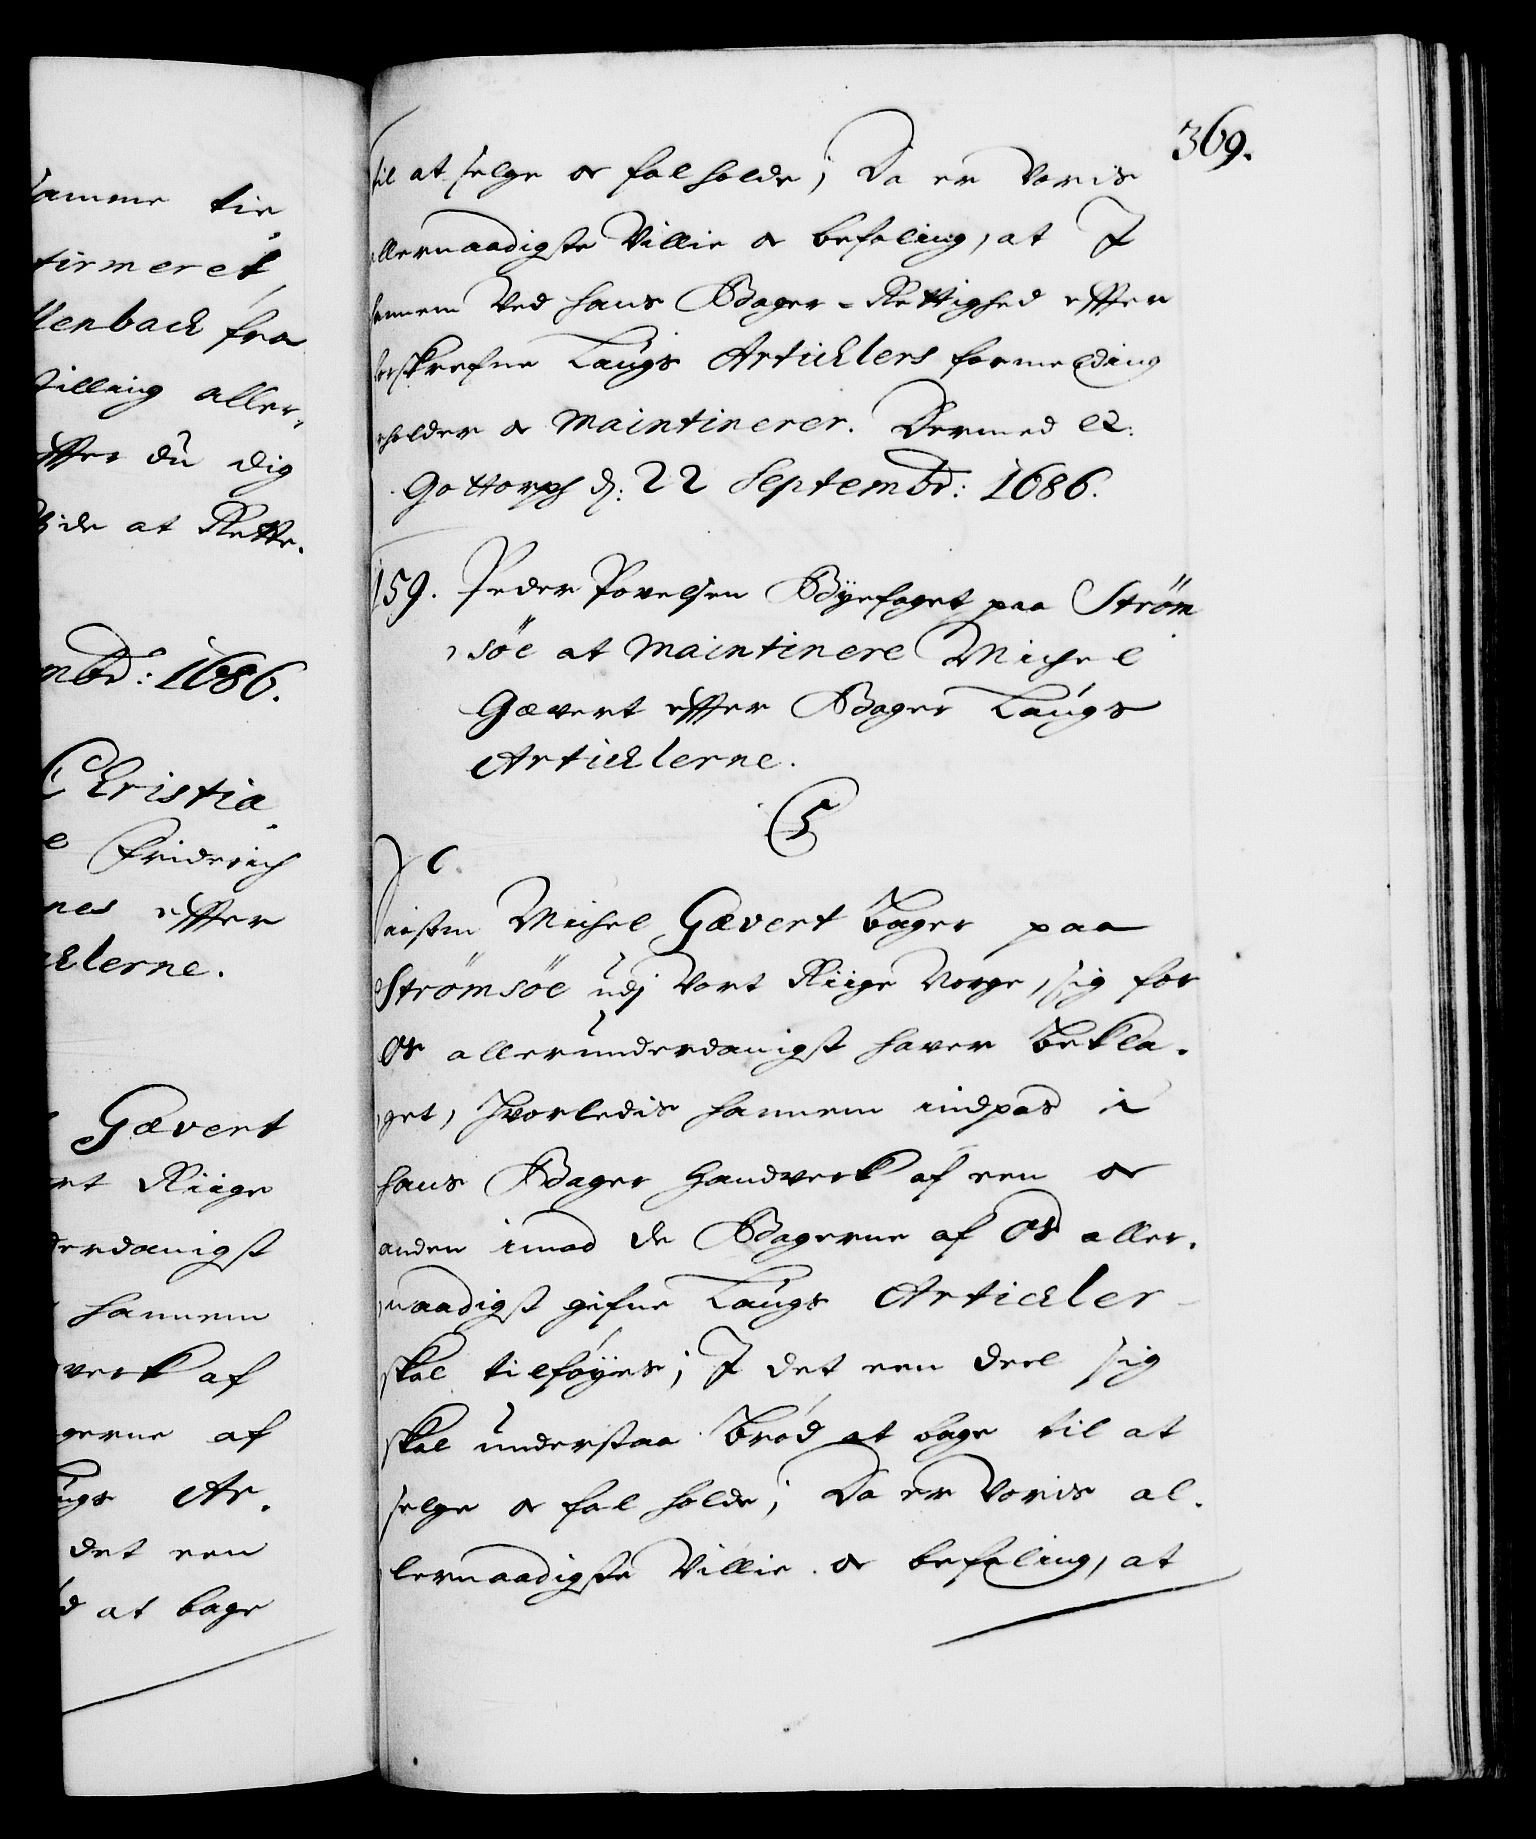 amme tie
firmeret,
llenback fra
stilling aller,
effter du dig
vide at Rette.
mbr: 1686.
Christia,
e Friderich
nes effter
cklerne.
Gævert
rt Riige
derdanigst
hannem
verk af
gerne af
ugs Ar,
det een
d at bage
369.
til at selge oc fal holde; Da er Voris
allernaadigste Villie oc befaling, at I
hannem Ved hans Bager-Rettighed effter
forskrefne Laugs Articklers formelding
holder oc Maintinerer. Dermed etc:
Gottorph d: 22 Septembr: 1686.
159. Peder Povelsen Byefoget paa Ström
söe at Maintinere Michel
Gævert effter Bager Laugs
Articklerne.
C5
C.
Eftersom Michel Gævert Bager paa
Strömsöe udj Vort Riige Norge, sig for
Os allerunderdanigst haver bekla,
get, hvorledis hannem indpas i
hans Bager Handverk af een oc
anden imod de Bagerne af Os aller,
naadigst gifne Laugs Artickler
skal tilföyes; I det een deel sig
skal understaa Bröd at bage til at
selge oc fal holde; Da er Voris al,
lernaadigste Villie oc befaling, at